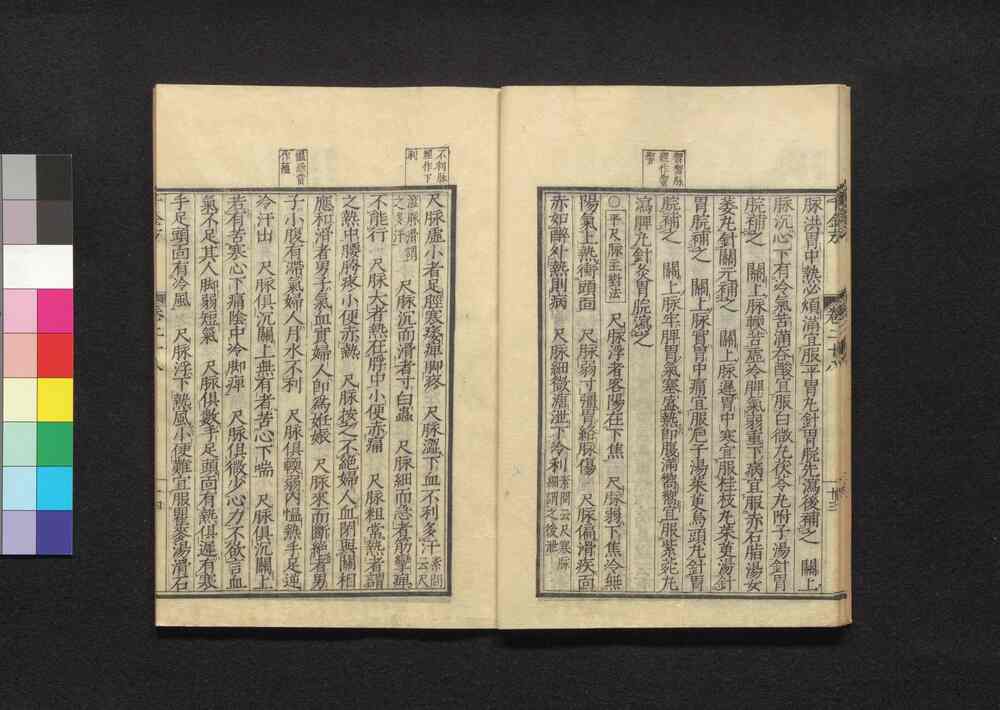 脉洪胃中熱必煩滿宜服平胃丸針胃脘先瀉後補之　關上
脉沉心下有冷氣苦滿吞酸宜服白微丸茯苓丸附子湯針胃
脘補之　關上脉輭苦虛冷脾氣弱重下病宜服赤石脂湯女
萎丸針關元補之　關上脉遲胃中寒宜服桂枝丸茱萸湯針
胃脘補之　關上脉實胃中痛宜服巵子湯茱萸烏頭丸針胃
脘補之　關上脉牢脾胃氣塞盛熱即腹滿響響宜服紫菀丸
瀉脾丸針灸胃脘瀉之
○平尺脉主對法　尺脉浮者客陽在下焦　尺脉弱下焦冷無
陽氣上熱衝頭面　尺脉弱寸彊胃絡脉傷　尺脉偏滑疾面
赤如醉外熱則病　尺脉細微溏泄下冷利素問云尺寒脉細謂之後泄
響響脉經作嚮嚮
千金方　卷二十八　十三
尺脉虛小者足脛寒痿痺脚疼　尺脉澁下血不利多汗素問云尺
澁脉滑謂之多汗　尺脉沉而滑者寸白蟲　尺脉細而急者筋攣痺
不能行　尺脉大者熱在脬中小便赤痛　尺脉粗常熱者謂
之熱中腰胯疼小便赤熱　尺脉按之不絕婦人血閉與關相
應和滑者男子氣血實婦人即爲姙娠　尺脉來而斷絕者男
子小腹有滯氣婦人月水不利　尺脉俱輭弱內慍熱手足逆
冷汗出　尺脉俱沉關上無有者苦心下喘　尺脉俱沉關上
若有苦寒心下痛陰中冷脚痺　尺脉俱微少心力不欲言血
氣不足其人脚弱短氣　尺脉俱數手足頭面有熱俱遲有寒
手足頭面有冷風　尺脉浮下熱風小便難宜服瞿麥湯滑石
不利脉經作下利
慍恐當作薀
卷二十八　十四